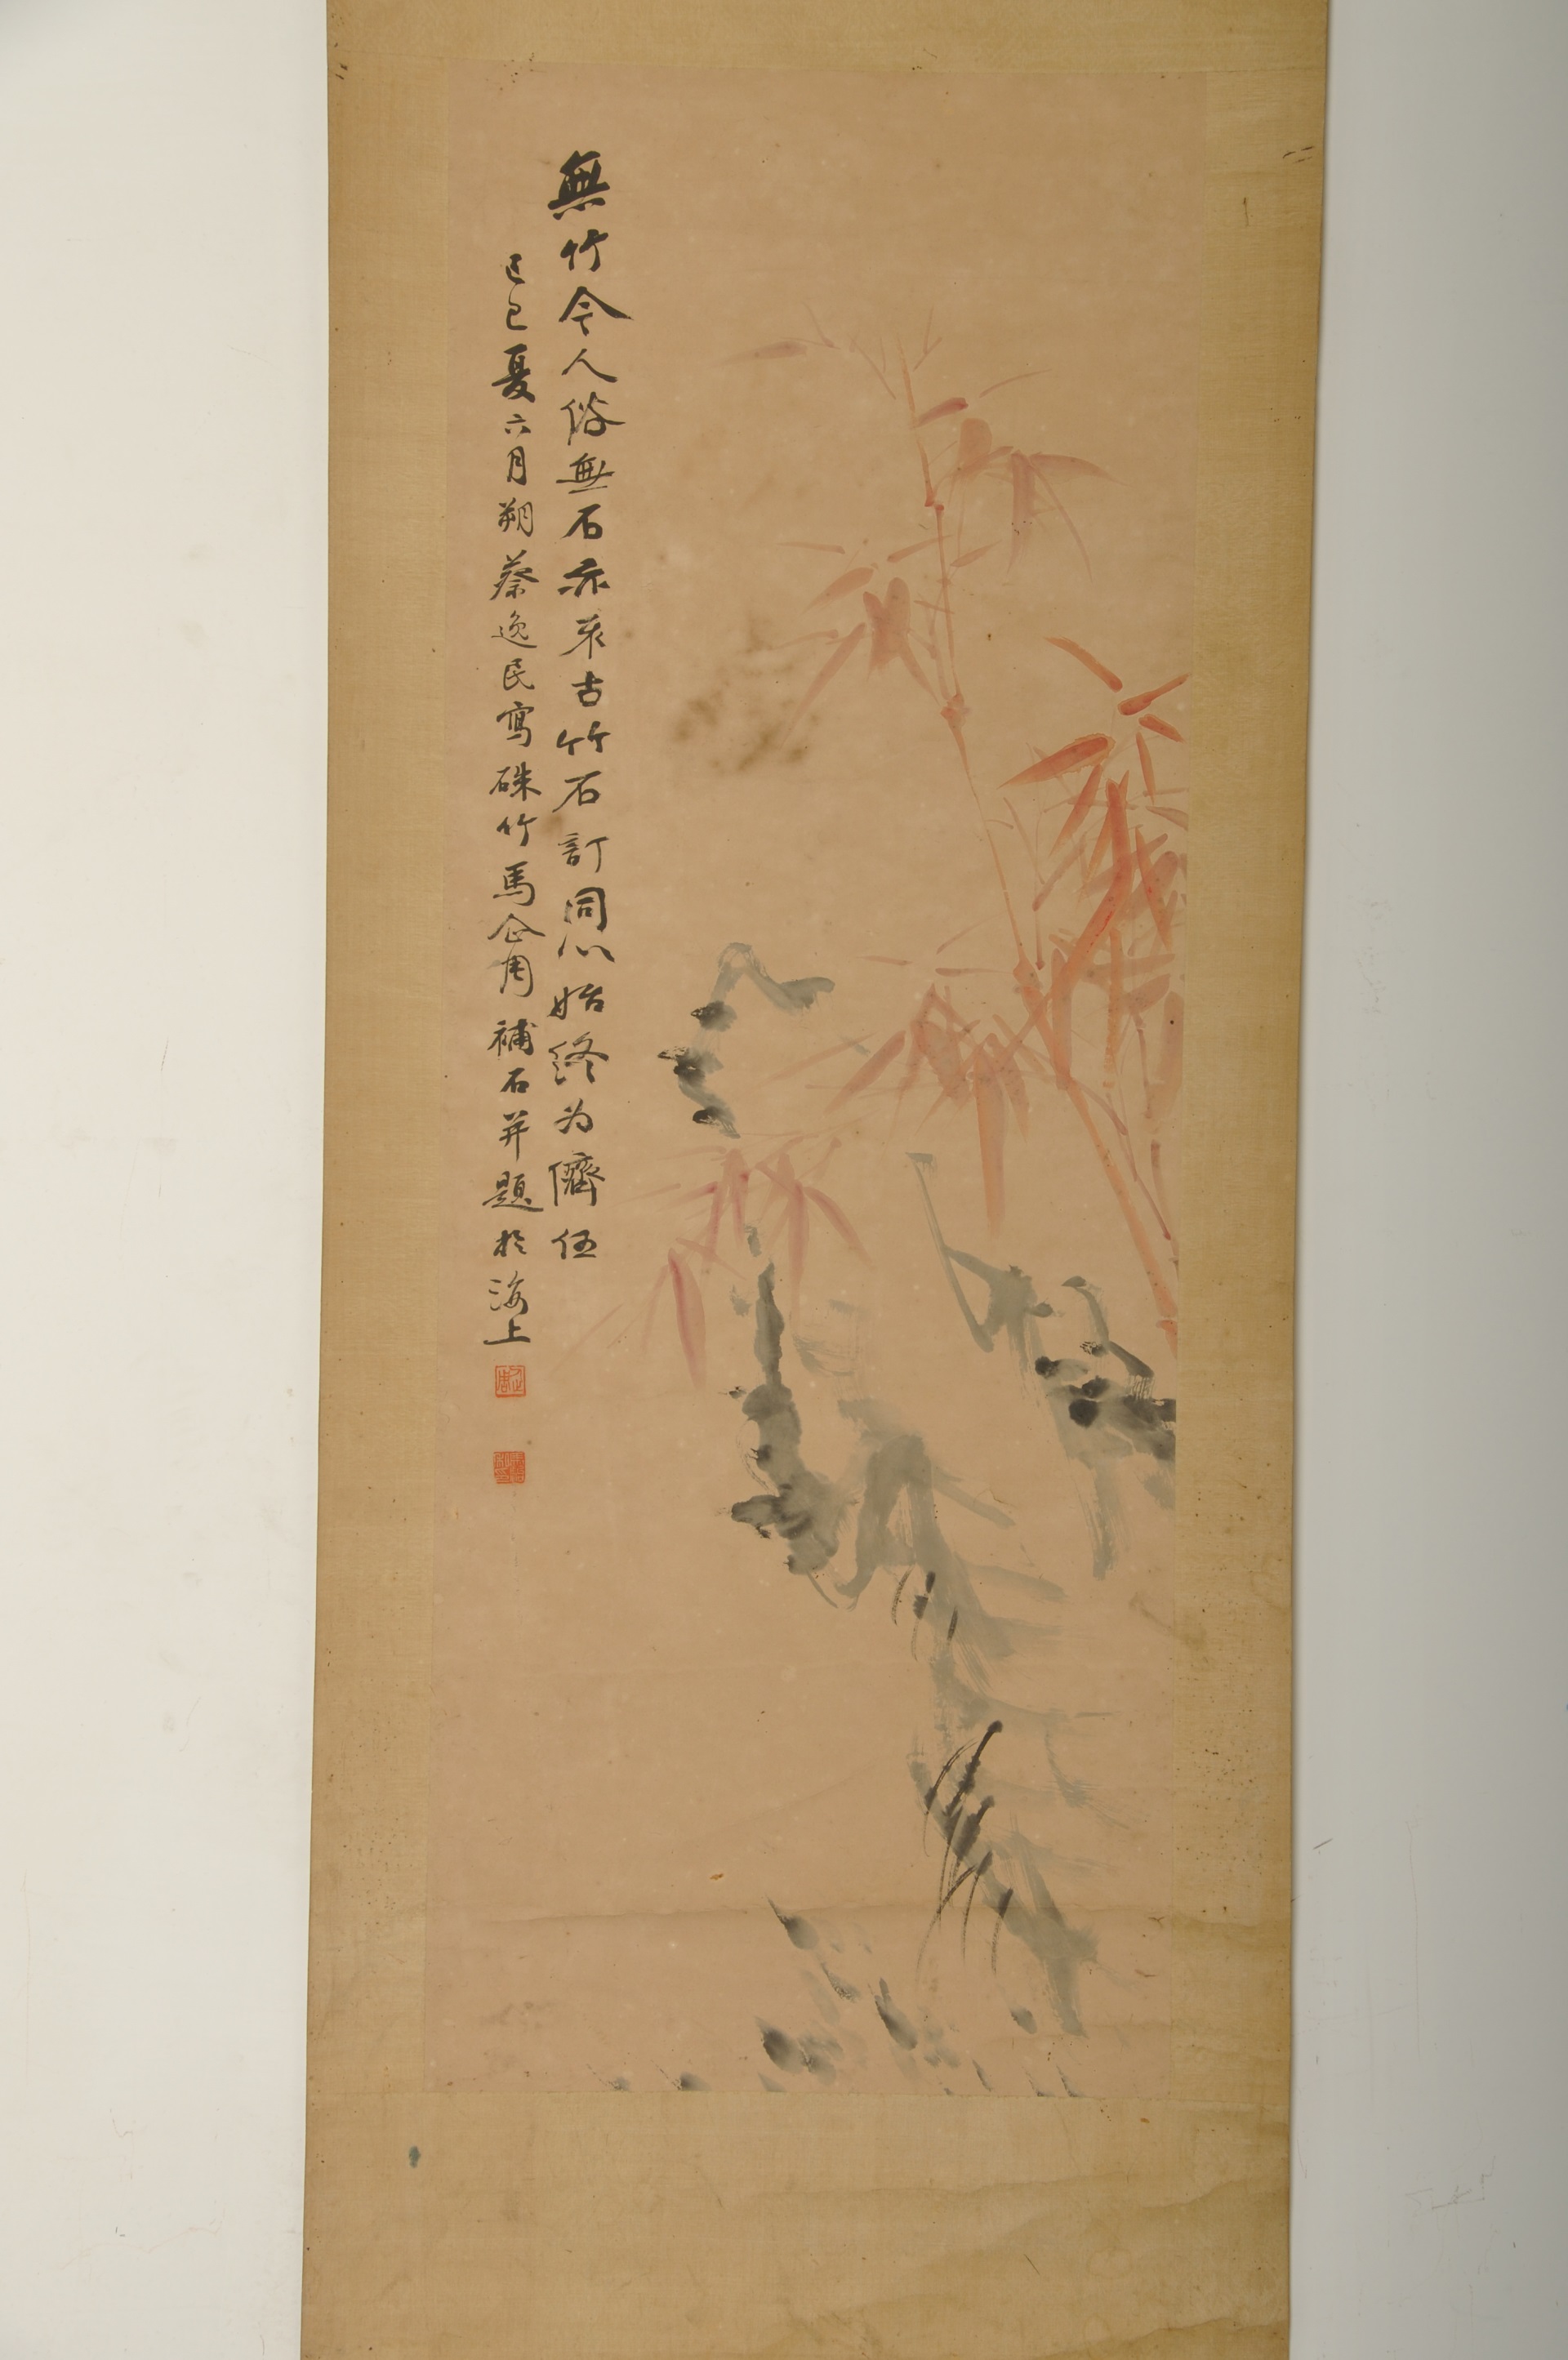 無竹令人俗無石亦乖古竹石訂同心始終为儕伍
己巳夏六月朔蔡逸民寫硃竹馬企周補石并題於海上
企周